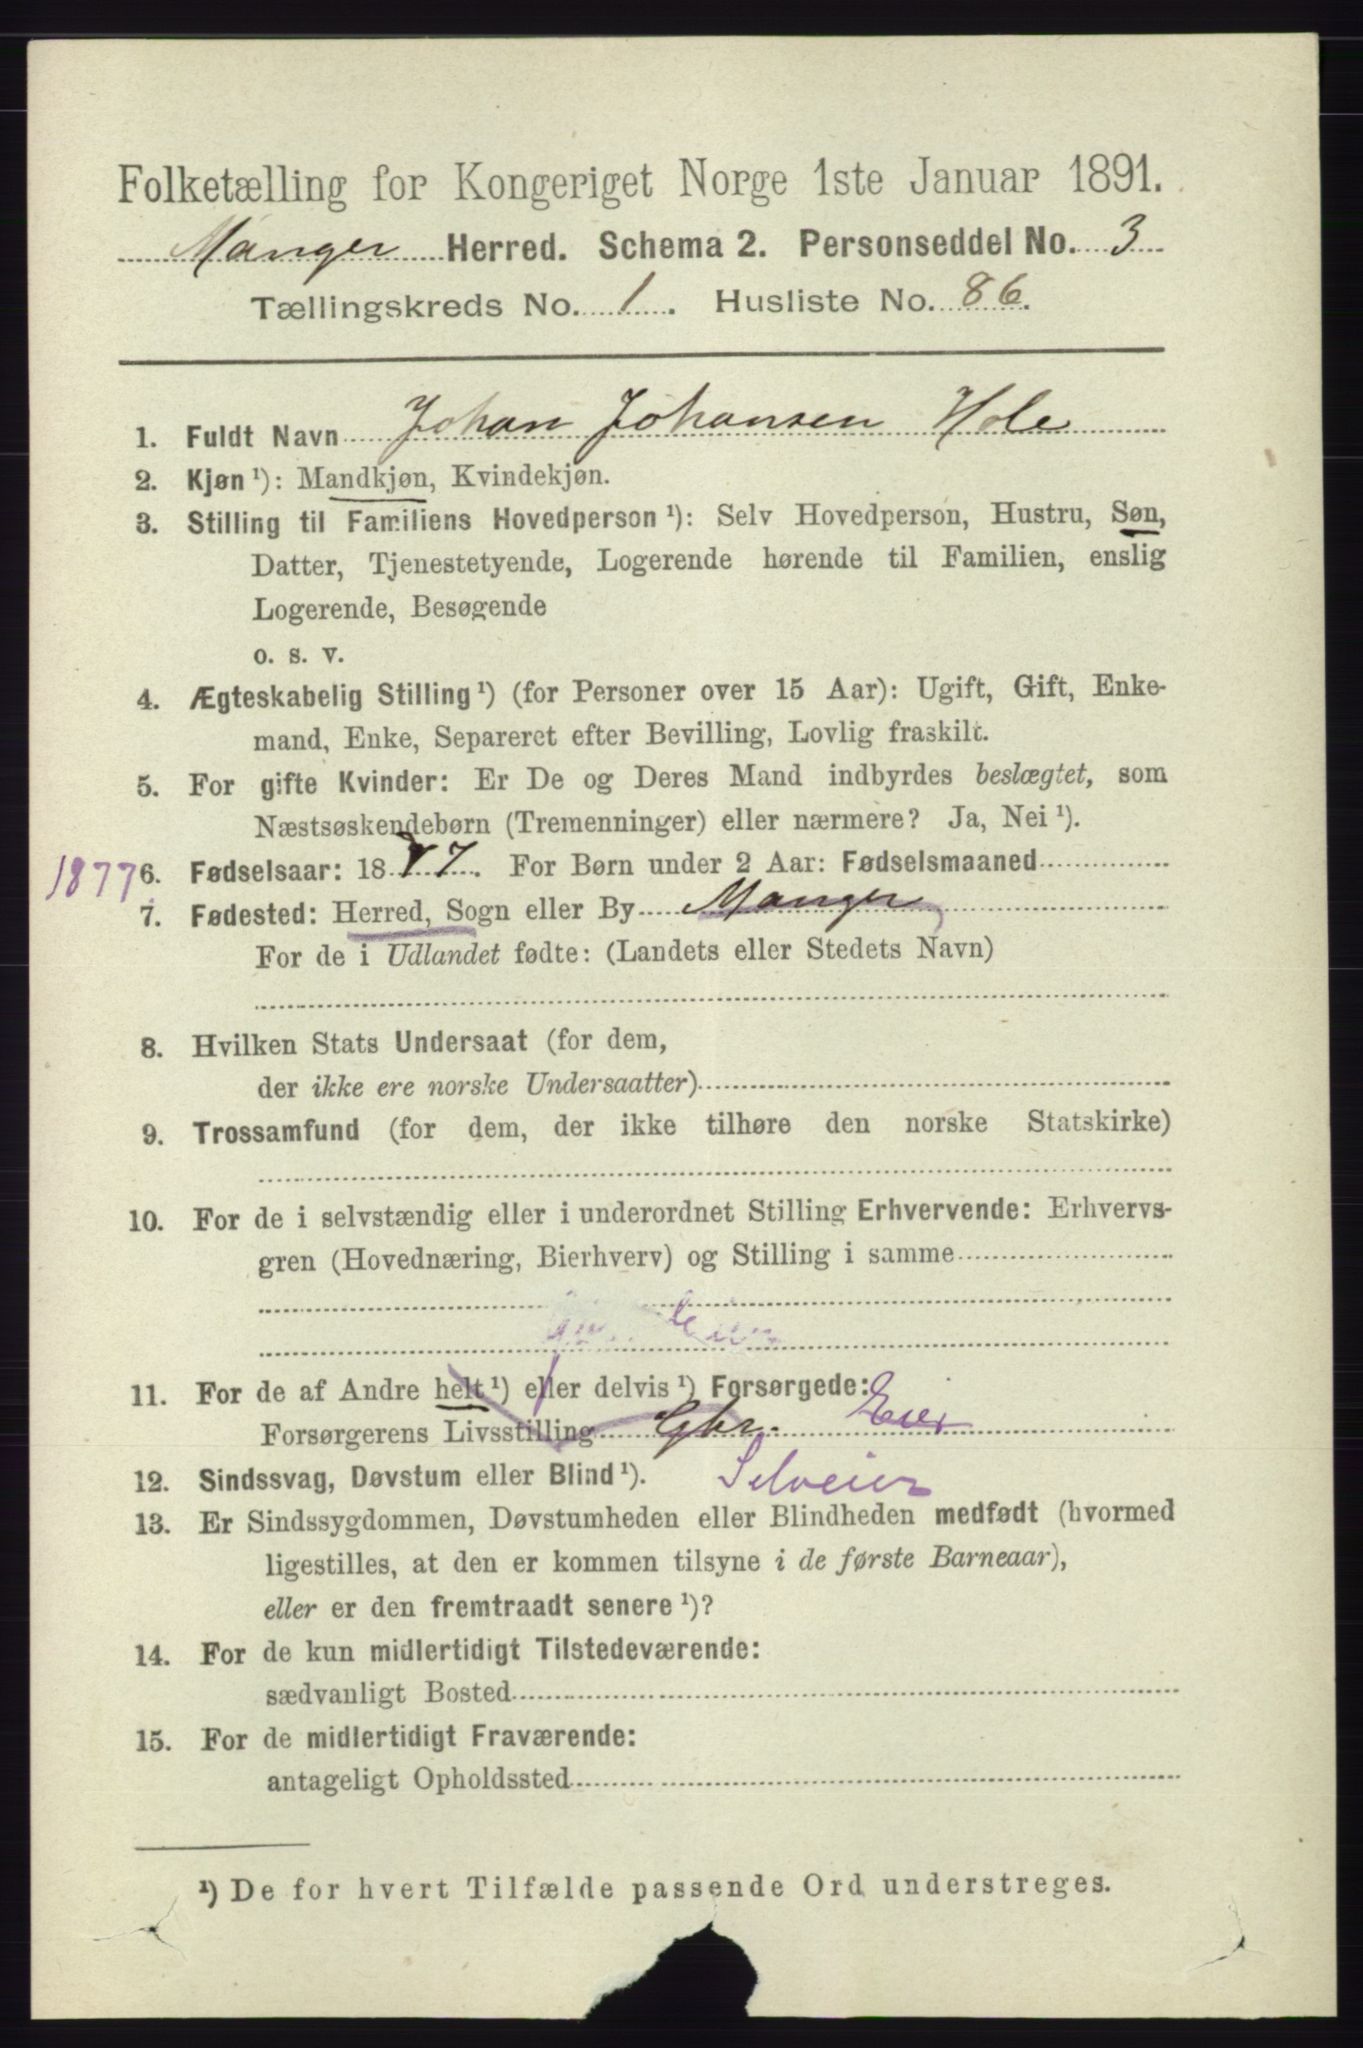 Folketælling for Kongeriget Norge 1ste Januar 1891.
Manger Herred. Schema 2. Personseddel No. 3
Tællingskreds No. 1. Husliste No. 86.
1. Fuldt Navn Johan Johansen Hole
2. Kjøn ¹): Mandkjøn, Kvindekjøn.
3. Stilling til Familiens Hovedperson ¹): Selv Hovedperson, Hustru, Søn,
Datter, Tjenestetyende, Logerende hørende til Familien, enslig
Logerende, Besøgende
o. s. v.
4. Ægteskabelig Stilling ¹) (for Personer over 15 Aar): Ugift, Gift, Enke-
mand, Enke, Separeret efter Bevilling, Lovlig fraskilt.
5. For gifte Kvinder: Er De og Deres Mand indbyrdes beslægtet, som
Næstsøskendebørn (Tremenninger) eller nærmere? Ja, Nei ¹).
1877 6. Fødselsaar: 1877. For Børn under 2 Aar: Fødselsmaaned
7. Fødested: Herred, Sogn eller By Manger
For de i Udlandet fødte: (Landets eller Stedets Navn)
8. Hvilken Stats Undersaat (for dem,
der ikke ere norske Undersaatter)
9. Trossamfund (for dem, der ikke tilhøre den norske Statskirke)
10. For de i selvstændig eller i underordnet Stilling Erhvervende: Erhvervs-
gren (Hovednæring, Bierhverv) og Stilling i samme
11. For de af Andre helt ¹) eller delvis ¹) Forsørgede:
Forsørgerens Livsstilling Gbr. Eier
12. Sindssvag, Døvstum eller Blind ¹). Selveier
13. Er Sindssygdommen, Døvstumheden eller Blindheden medfødt (hvormed
ligestilles, at den er kommen tilsyne i de første Barneaar),
eller er den fremtraadt senere ¹)?
14. For de kun midlertidigt Tilstedeværende:
sædvanligt Bosted
15. For de midlertidigt Fraværende:
antageligt Opholdssted
¹) De for hvert Tilfælde passende Ord understreges.